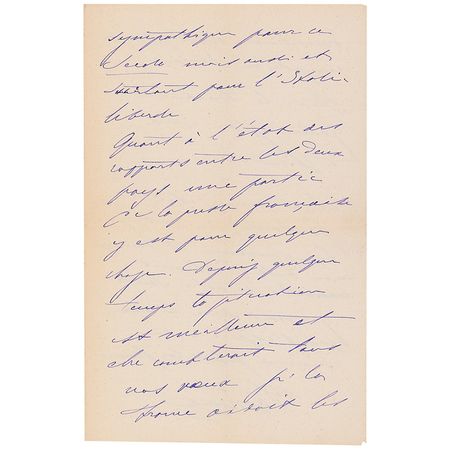 sympathique pour ce
Secolo mais aussi et
surtout pour l'Italie
liberale
Quant à l'état des
rapports entre les deux
pays une partie
de la presse française
y est pour quelque
chose. Depuis quelque
temps la situation
est meilleure et
elle comblerait tous
nos vœux si la
France avait les